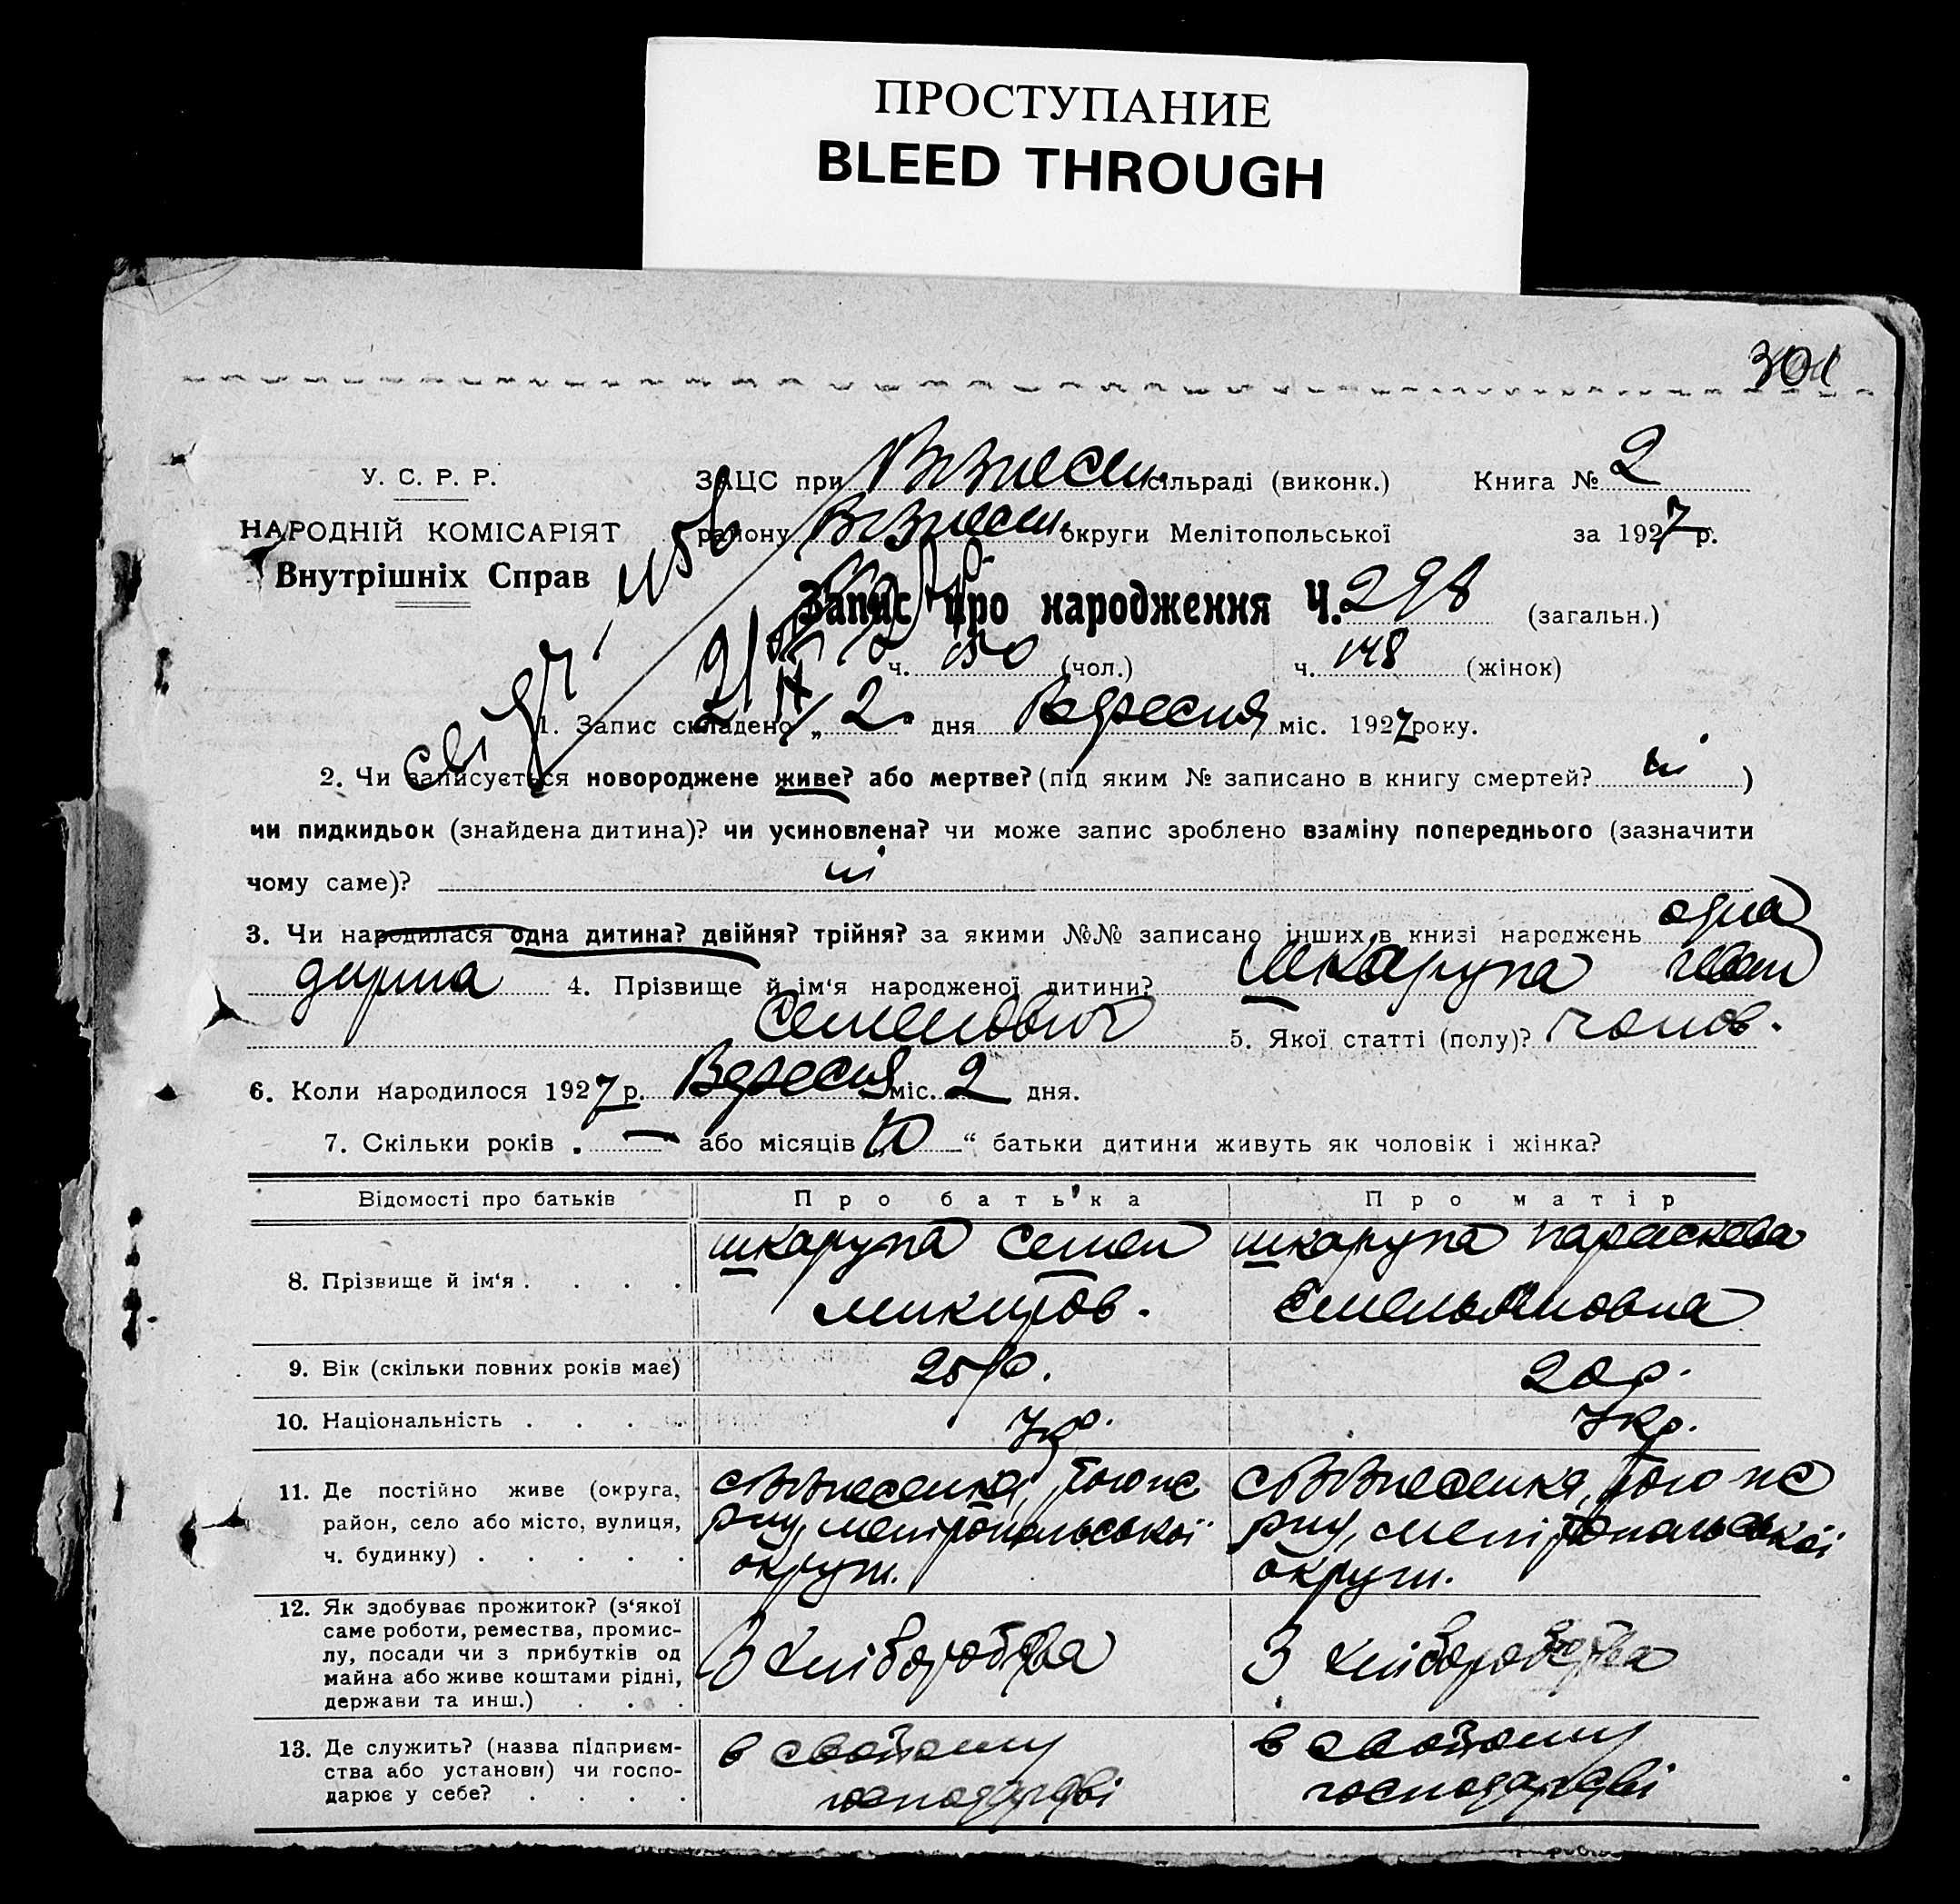 ПРОСТУПАНИЕ
BLEED THROUGH
301
У. С. Р. Р.
НАРОДНІЙ КОМІСАРІЯТ
Внутрішніх Справ
ЗАЦС при Вознесен. сільраді (виконк.) Книга № 2
району Вознесен. округи Мелітопольської за 1927 р.
Запис про народження Ч. 298 (загальн.)
ч. 150 (чол.) ч. 148 (жінок)
1. Запис складено „ 2 " дня Вересня міс. 1927 року.
2. Чи записується новороджене живе? або мертве? (під яким № записано в книгу смертей? ні )
чи пидкидьок (знайдена дитина)? чи усиновлена? чи може запис зроблено взаміну попереднього (зазначити
чому саме)? ні
3. Чи народилася одна дитина? двійня? трійня? за якими №№ записано інших в книзі народжень одна
дитина 4. Прізвище й ім‘я народженої дитини? Шкарупа Іван
Семенович 5. Якої статті (полу)? чолов.
6. Коли народилося 1927 р. Вересня міс. 2 дня.
7. Скільки років „ — або місяців 10 “ батьки дитини живуть як чоловік і жінка?
Відомості про батьків Про батька Про матір
8. Прізвище й ім‘я . . . . Шкарупа Семен Микитов. Шкарупа Параскева Емельяновна
9. Вік (скільки повних років має) 25 р. 20 р.
10. Національність . . . . Укр. Укр.
11. Де постійно живе (округа,
район, село або місто, вулиця,
ч. будинку) . . . . .
с Вознесенка, того же
р-ну, Мелітопольської
округи.
с Вознесенка, того же
р-ну, Мелітопольської
округи.
12. Як здобуває прожиток? (з‘якої
саме роботи, ремества, промис-
лу, посади чи з прибутків од
майна або живе коштами рідні,
держави та инш.) . . .
З хліборобства
З хліборобства
13. Де служить? (назва підприєм-
ства або установи) чи госпо-
дарює у себе? . . . .
в свойому
господарстві
в свойому
господарстві